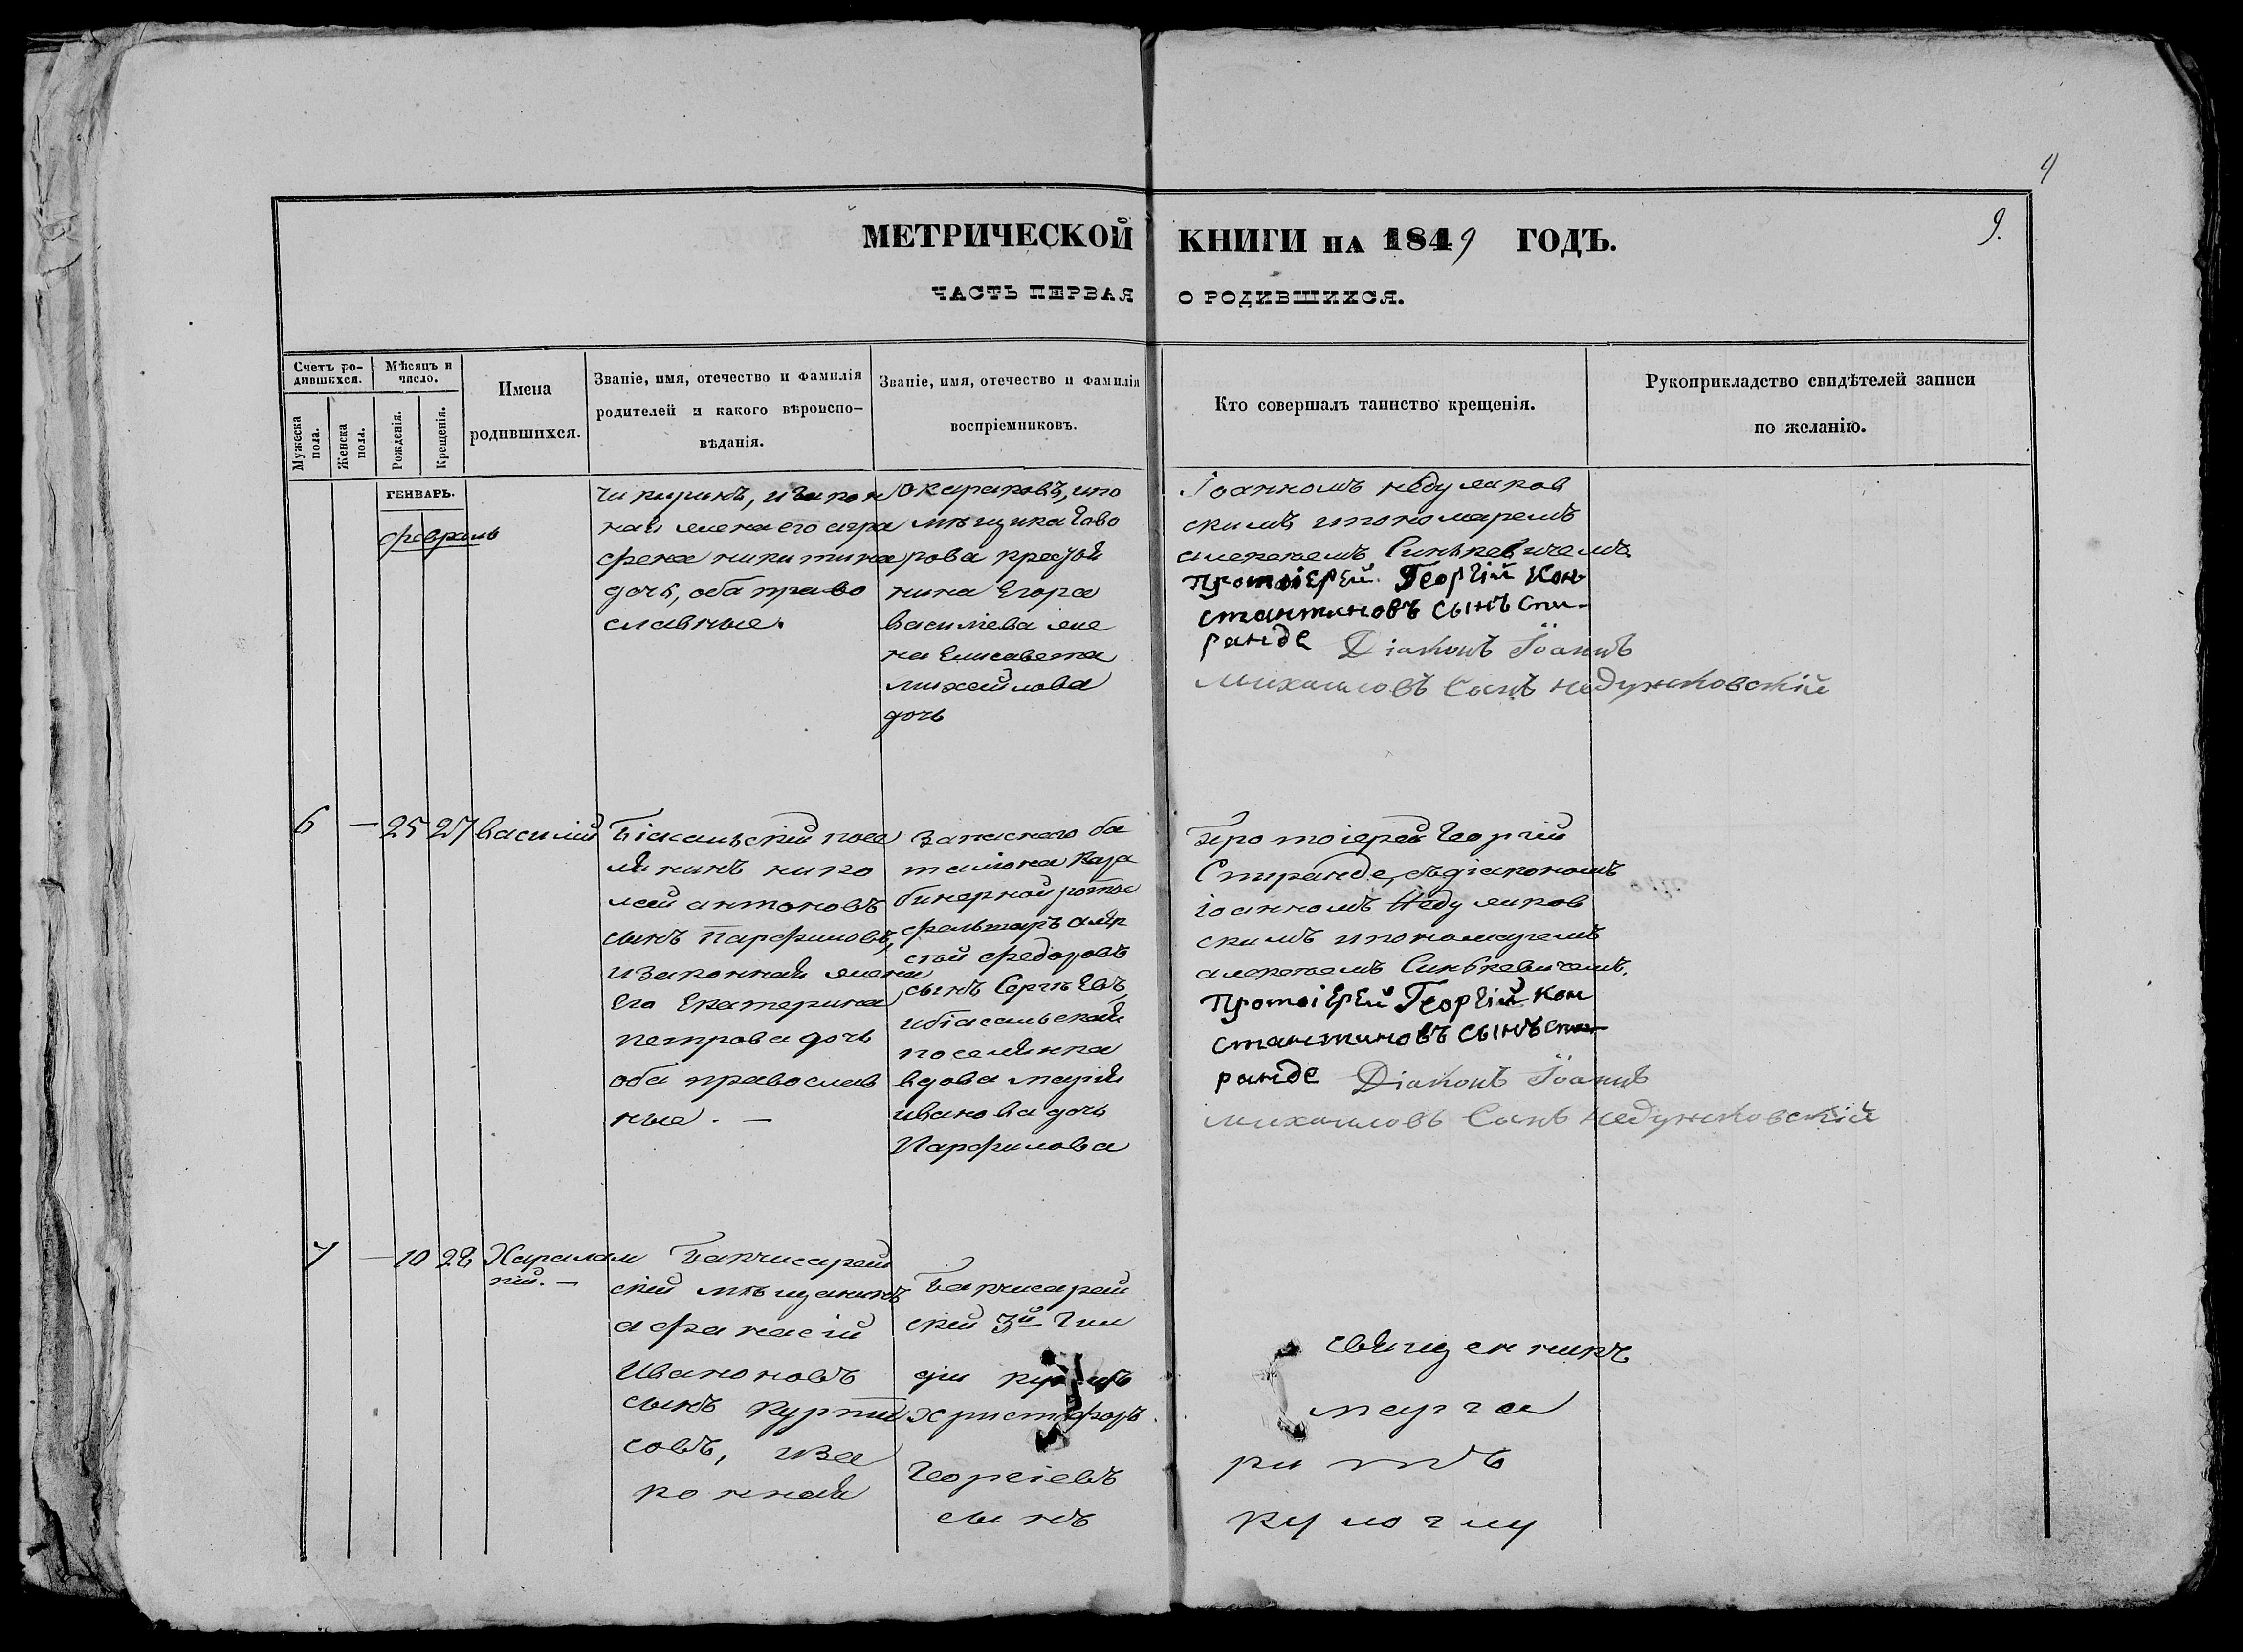 4
9.
МЕТРИЧЕСКОЙ КНИГИ НА 1849 ГОДЪ.
ЧАСТЬ ПЕРВАЯ О РОДИВШИХСЯ.
Счетъ ро-
дившихся.
Мужеска
пола.
Женска
пола.
Мѣсяцъ и
число.
Рожденія.
Крещенія.
Имена
родившихся.
Званіе, имя, отечество и фамилія
родителей и какого вѣроиспо-
вѣданія.
Званіе, имя, отечество и фамилія
воспріемниковъ.
Кто совершалъ таинство крещенія.
Рукоприкладство свидѣтелей записи
по желанію.
ГЕНВАРЬ.
февраль
изакон
ная жена его агра
фена никитина
дочь, оба право
славные.
мѣщика
Егора
василіева же
на Елисавета
михайлова
дочь
Іоанномъ недужиков
скимъ ипономаремъ
алексеемъ Синькевичемъ.
Протоіерей Георгій Кон
стантиновъ сынъ Спи-
ранде Діаконъ Іоаннъ
михаиловъ Сынъ недужковскій
6 — 25 27 василій
Біасальскій посе
лянинъ нико
лай антоновъ
сынъ Парфиловъ,
изаконная жена
его Екатерина
петрова дочь
оба православ
ные. —
запаснаго ба
таліона кара
бинерной роты
фельтаръ
федоровъ
сынъ Сергѣевъ,
ибіасальская
поселянка
вдова марія
иванова дочь
Парфилова
Протоіерей Георгій
Спиранде, съдіакономъ
іоанномъ Недужиков
скимъ ипономаремъ
алексеемъ Синькевичемъ.
Протоіерей Георгій Кон
стантиновъ сынъ Спи-
ранде Діаконъ Іоаннъ
михаиловъ Сынъ недужковскій
7 — 10 28 Харалам
пій. —
Бакчисарай
скій мѣщанинъ
афанасій
Ивановъ
сынъ курпи
совъ, иза
конная
Бакчисарай
скій 3й Гил
діи купецъ
христофоръ
Георгіевъ
сынъ
священникъ
марга
ритъ